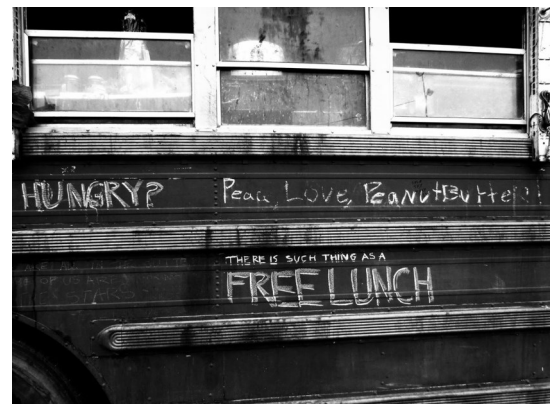 HUNGRY?
Peace, Love, PeanutButter!
THERE IS SUCH THING AS A
FREE LUNCH